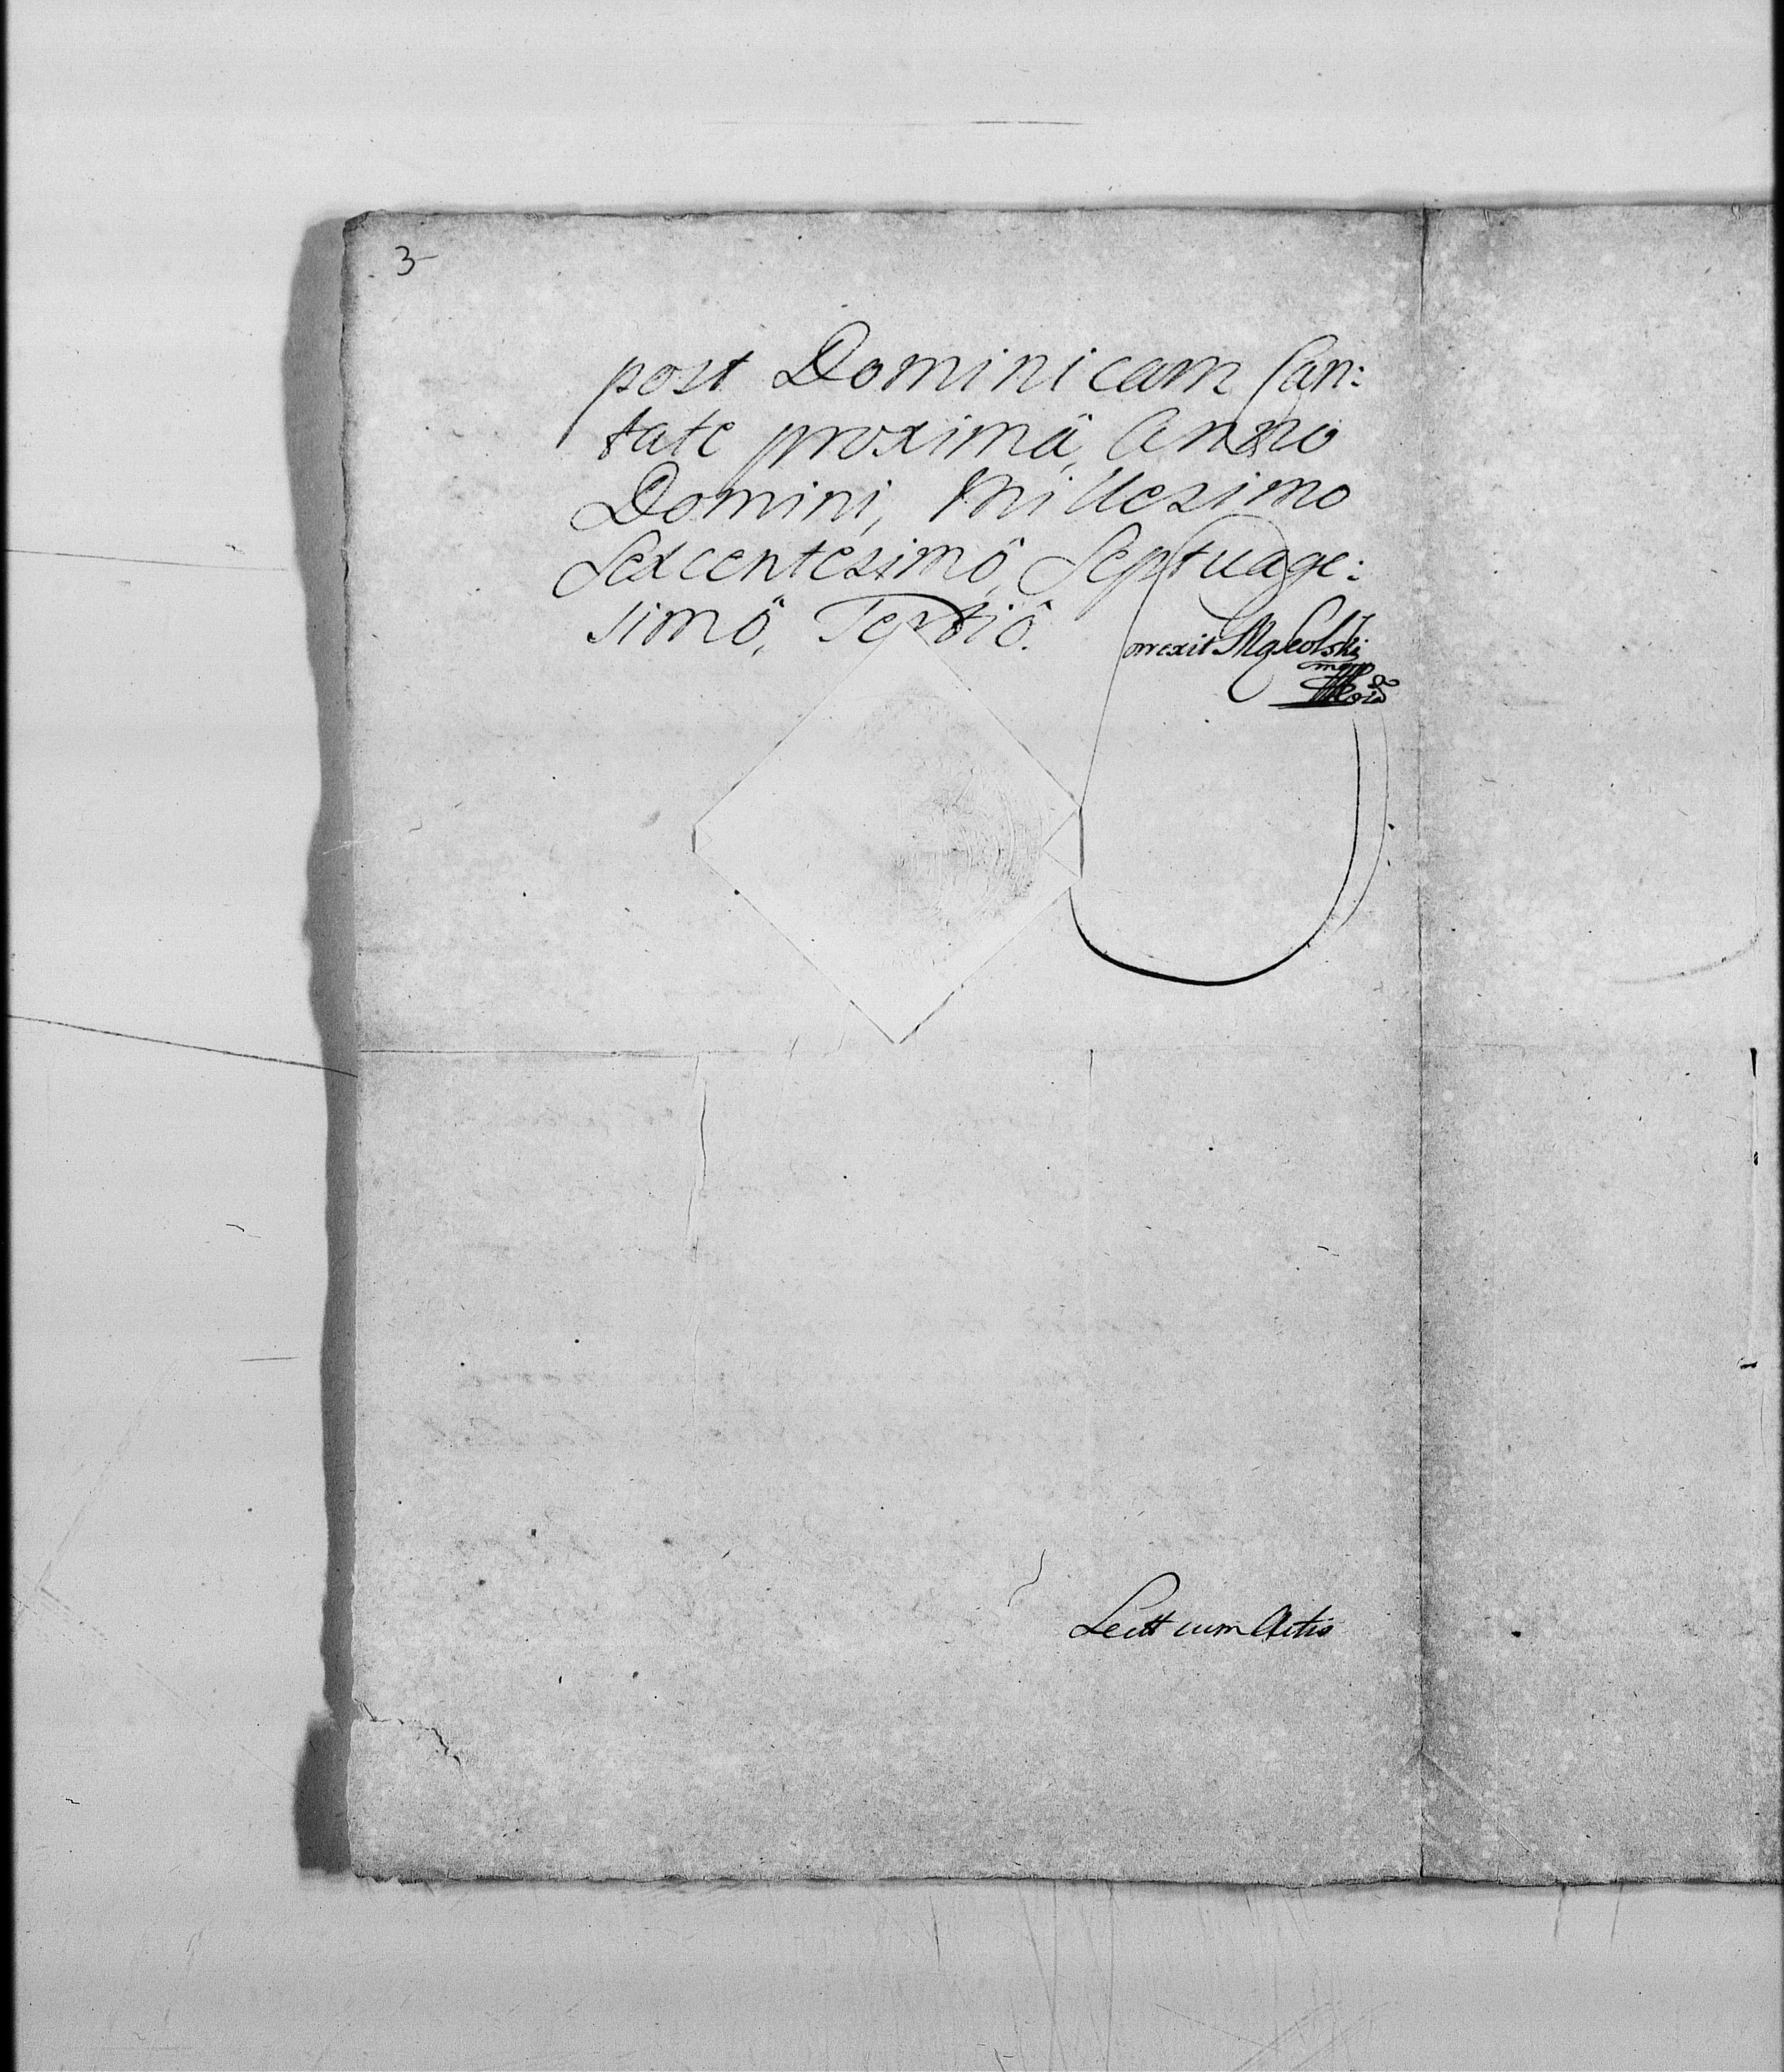 3
post Dominicam Can:
tate proximâ, Anno
Domini, Millesimo
Sexcentesimô, Septuage:
simô, Tertiô.
Correxit
mpp
Lectt cum Actis